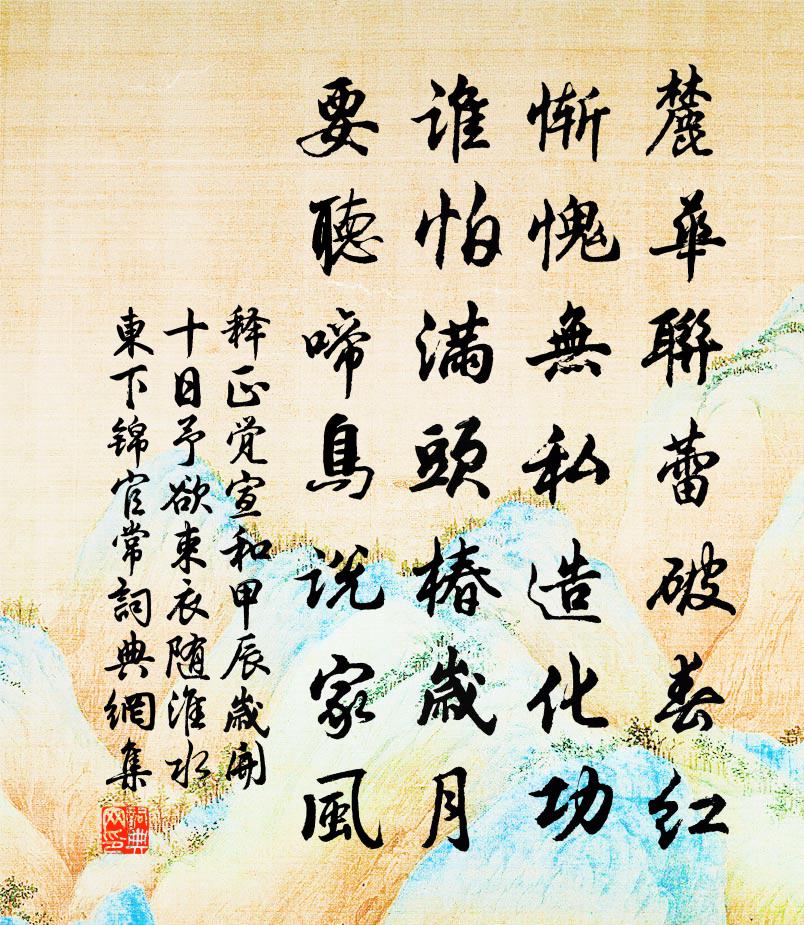 麓華聯蕾破春红
惭愧無私造化功
谁怕满頭椿歲月
要聽啼鳥说家風
释正觉宣和甲辰歲開
十日予欲束衣随淮水
東下锦官常詞典網集
詞典网印